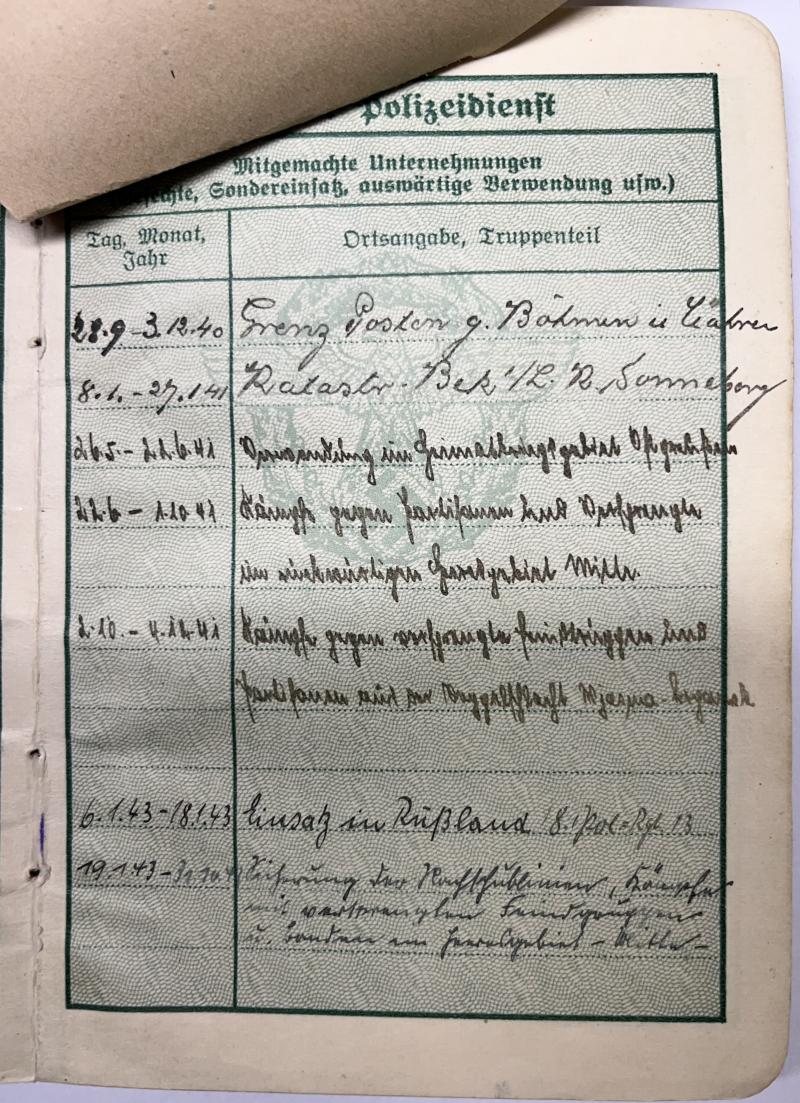 Polizeidienst
Mitgemachte Unternehmungen
Sondereinsatz, auswärtige Verwendung usw.)
Tag, Monat,
Jahr
Ortsangabe, Truppenteil
28.9 - 3.12.40 Grenz Posten g. Böhmen u Mähren
8.1. - 27.1 41 Katastr. - Bek. L. R. Sonneberg
26.5. - 22.6.41 Verwendung im Heimatkriegsgebiet Ostpreußen
22.6 - 1.10 41 Kämpfe gegen Partisanen und Versprengte
im rückwärtigen Heeresgebiet Mitte.
2.10. - 4.12.41 Kämpfe gegen versprengte Feindtruppen und
Partisanen aus der Doppelschlacht Wjasma -
6.1.43 - 18.1.43 Einsatz in Rußland 8./Pol-Rgt. 13
19.1.43 - Sicherung der Nachschublinien, Kämpfe
mit versprengten Feindgruppen
u. Banden im Heeresgebiet - Mitte -